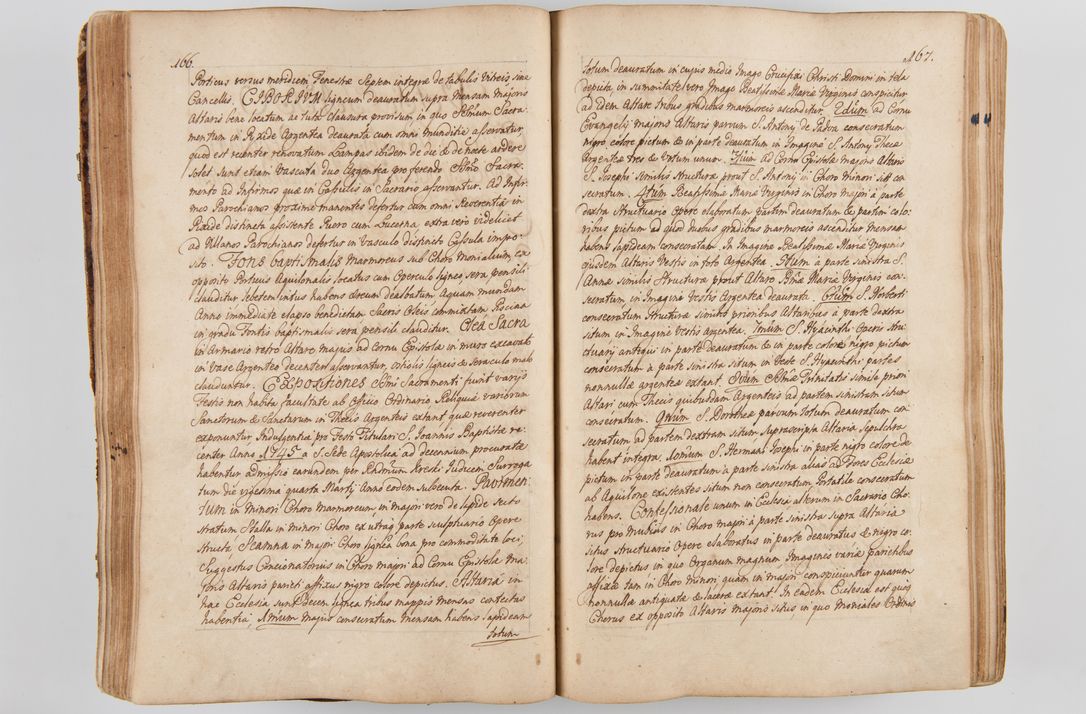 166.
Porticus versus meridiem Fenestræ Septem integræ de tabulis Vitreis, sine
Cancellis. CIBORIUM ligneum deauratum supra Mensam majoris
Altaris bene locatum ac tuta clausura provisum in quo Ssmum Sacra-
mentum in Pixide Argentea deaurata cum omni munditie asservatur,
quod est recenter renovatum Lampas ibidem de die & de nocte ardere
solet Sunt etiam Vascula duo Argentea pro ferendo Ssmo Sacra-
mento ad Infirmos quæ in Corbulis in Sacrario asservantur. Ad Infir-
mos Parochianos proxime manentes defertur cum omni Reverentia in
Pixide distincta assistente Puero cum Lucerna extra vero videlicet
ad Villanos Parochianos defertur in Vasculo distincto Cassula impo-
sito. Fons baptismalis Marmoreus sub Choro Monialium, ex
opposito Porticus Aquilonalis locatus cum Operculo ligneo, sera pensili
clauditur Lebetem intus habens Aquam mundam
Anno immediate elapso benedictam Sacris Oleis commixtam, Piscina
in gradu Fontis baptismalis sera pensili clauditur. Olea Sacra
in Armario retro Altare majus ad Cornu Epistolæ in muro excavato
in Vase Argenteo decenter asservantur, ostiolis ligneis & seraculo
clauduntur. Expositiones Ssmi Sacramenti fiunt varijs
Festis non habita facultate ab Officio Ordinario Reliquiæ variorum
Sanctorum & Sanctarum in Thecis Argenteis extant quæ reverenter
exponuntur, Indulgentiæ pro Festo Titulari S. Joannis Baptistæ re-
center Anno 1745 a S. Sede Apostolica ad decennium procuratæ
habentur admissæ earundem per Rndmum Kreski Judicem Surroga-
tum die vigesima quarta Martij Anno eodem subsecuta. Pavimen-
tum in minori Choro Marmoreum, in majori vero de lapide secto
stratum Stalla in minori Choro ex utraq parte sculptuario Opere
structa Scamna in majori Choro lignea bona pro commoditate loci,
Suggestus Concionatorius in Choro majori ad Cornu Epistolæ Ma-
joris Altaris parieti affixus nigro colore depictus. Altaria in
hac Ecclesia sunt decem lignea tribus mappis mensas contectas
habentia, Primum majus consecratum Mensam habens lapideam
totum
167.
totum deauratum in cujus medio Imago Crucifixi Christi Domini in tela
depicta, in summitate vero Imago Beatissimæ Mariæ Virginis conspicitur
ad idem Altare tribus gradibus marmoreis ascenditur. 2dum ad Cornu
Evangelij majoris Altaris parvum S. Antonij de Padva consecratum
nigro colore pictum & in parte deauratum in Imagine S. Antonij Thecæ
Argenteæ tres & Votum unum. 3tium ad Cornu Epistolæ majoris Altaris
S. Josephi similis Structuræ prout S. Antonij in Choro minori sitt con-
secratum. 4tum Beatissimæ Mariæ Virginis in Choro majori a parte
dextra Structuario Opere elaboratum partem deauratum & partem colo-
ribus pictum ad quod duobus gradibus marmoreis ascenditur mensam
habens lapideam consecratam. In Imagine Beatissimæ Mariæ Virginis
ejusdem Altaris Vestis in toto Argentea. 5tum à parte sinistra S.
Annæ similis Structuræ prout Altare Bssmæ Mariæ Virginis con-
secratum in Imagine Vestis Argentea deaurata. 6tum S. Norberti
consecratum Structura simili prioribus Altaribus à parte dextra
situm in Imagine Vestis argentea. 7mum S. Hyacinthi Operis stru-
ctuarij antiqui in parte deauratum & in parte colore nigro pictum
consecratum à parte sinistra situm in Veste S. Hyacinthi partes
nonnullæ argenteæ extant. 8vum Ssmæ Trinitatis simile priori
Altari cum Thecis quibusdam Argenteis ad partem sinistram situm
consecratum. 9num S. Dorotheæ parvum totum deauratum con-
secratum ad partem dextram situm Suprascripta Altaria Sepulchra
habent integra. 10mum S. Hermani Josephi in parte nigro colore de-
pictum in parte deauratum à parte sinistra alias ad Fores Ecclesiæ
ab Aquilone existentes situm non consecratum Portatile consecratum
habens. Confessionale unum in Ecclesia alterum in Sacrario Cho-
rus pro Musicis in Choro majori à parte sinistra supra Altaria
situs structuario Opere elaboratus in parte deauratus & nigro co-
lore depictus in quo Organum magnum. Imagines variæ parietibus
affixæ tam in Choro minori quàm in majori conspiciuntur quarum
nonnullæ antiquatæ & laceræ extant. In eadem Ecclesia est quoq
Chorus ex opposito Altaris majoris situs, in quo Moniales Ordinis